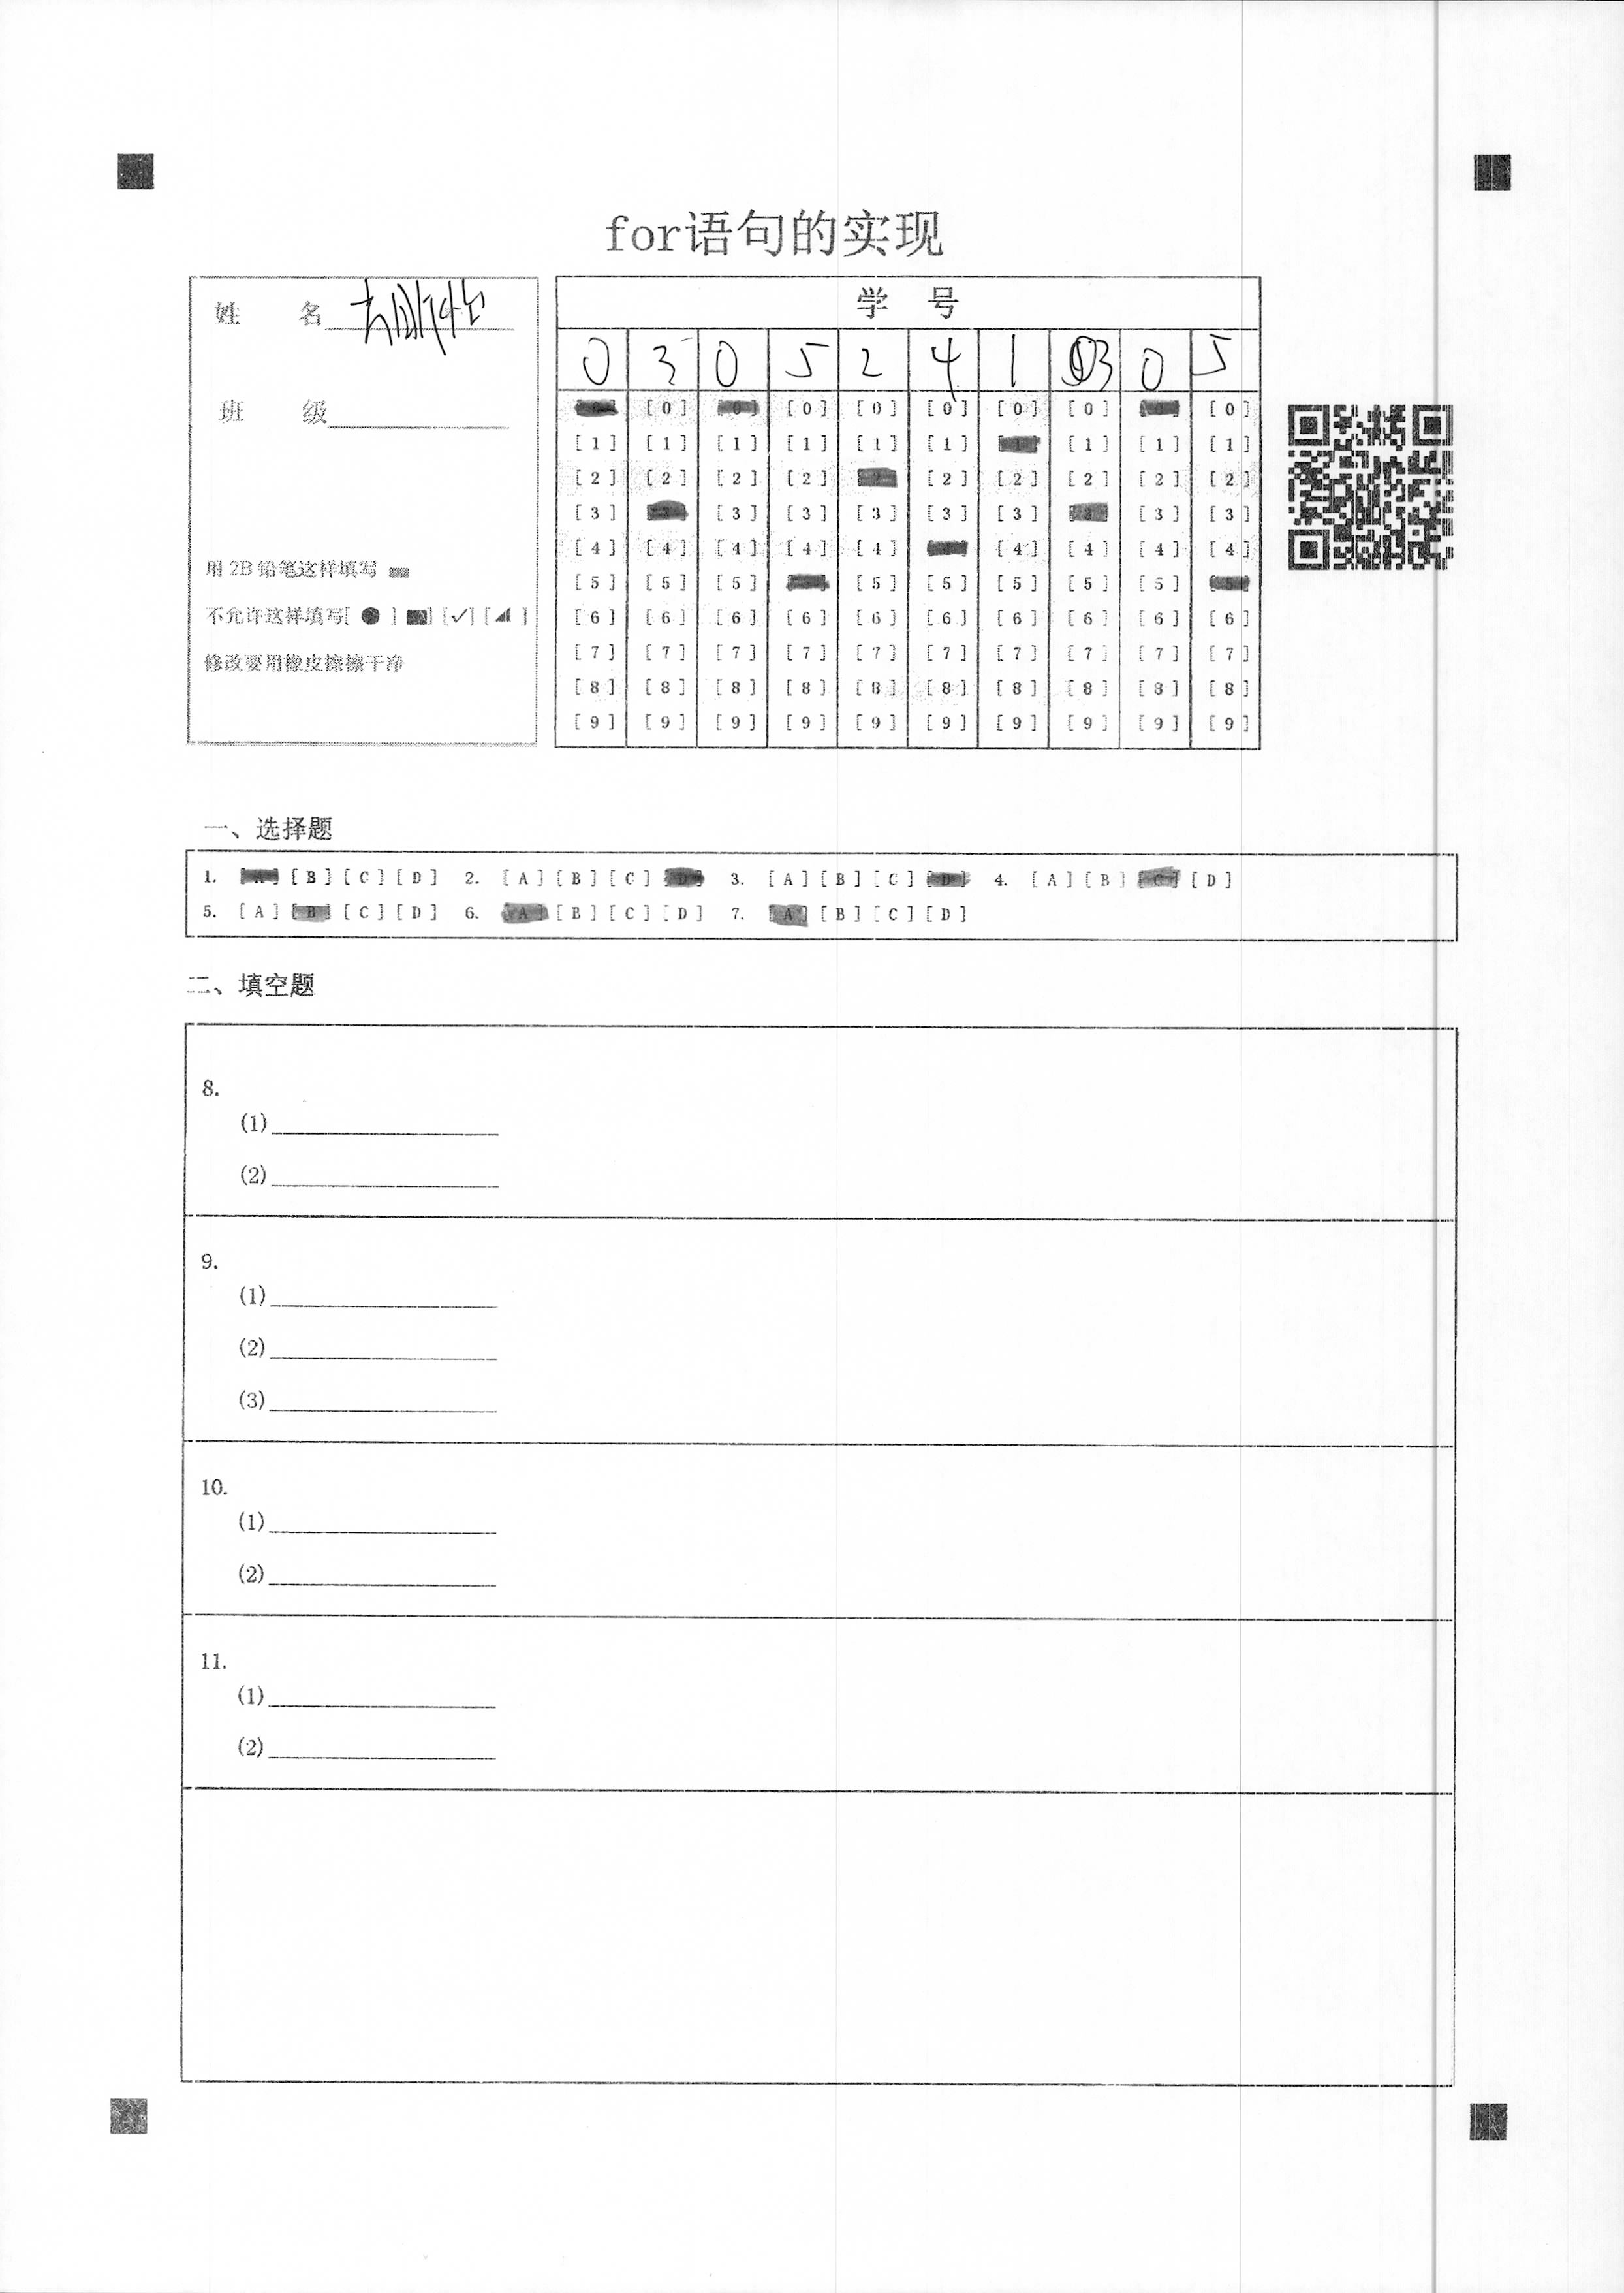 for语句的实现
姓 名
班 级
用 2B 铅笔这样填写
不允许这样填写[ ● ] [✓] [ ]
修改要用橡皮擦擦干净
学 号
0 3 0 5 2 4 1 3 0 5
[0] [0] [0] [0] [0] [0] [0] [0] [0] [0]
[1] [1] [1] [1] [1] [1] [1] [1] [1] [1]
[2] [2] [2] [2] [2] [2] [2] [2] [2] [2]
[3] [3] [3] [3] [3] [3] [3] [3] [3] [3]
[4] [4] [4] [4] [4] [4] [4] [4] [4] [4]
[5] [5] [5] [5] [5] [5] [5] [5] [5] [5]
[6] [6] [6] [6] [6] [6] [6] [6] [6] [6]
[7] [7] [7] [7] [7] [7] [7] [7] [7] [7]
[8] [8] [8] [8] [8] [8] [8] [8] [8] [8]
[9] [9] [9] [9] [9] [9] [9] [9] [9] [9]
一、选择题
1. [A] [B] [C] [D] 2. [A] [B] [C] [D] 3. [A] [B] [C] [D] 4. [A] [B] [C] [D]
5. [A] [B] [C] [D] 6. [A] [B] [C] [D] 7. [A] [B] [C] [D]
二、填空题
8.
(1)
(2)
9.
(1)
(2)
(3)
10.
(1)
(2)
11.
(1)
(2)